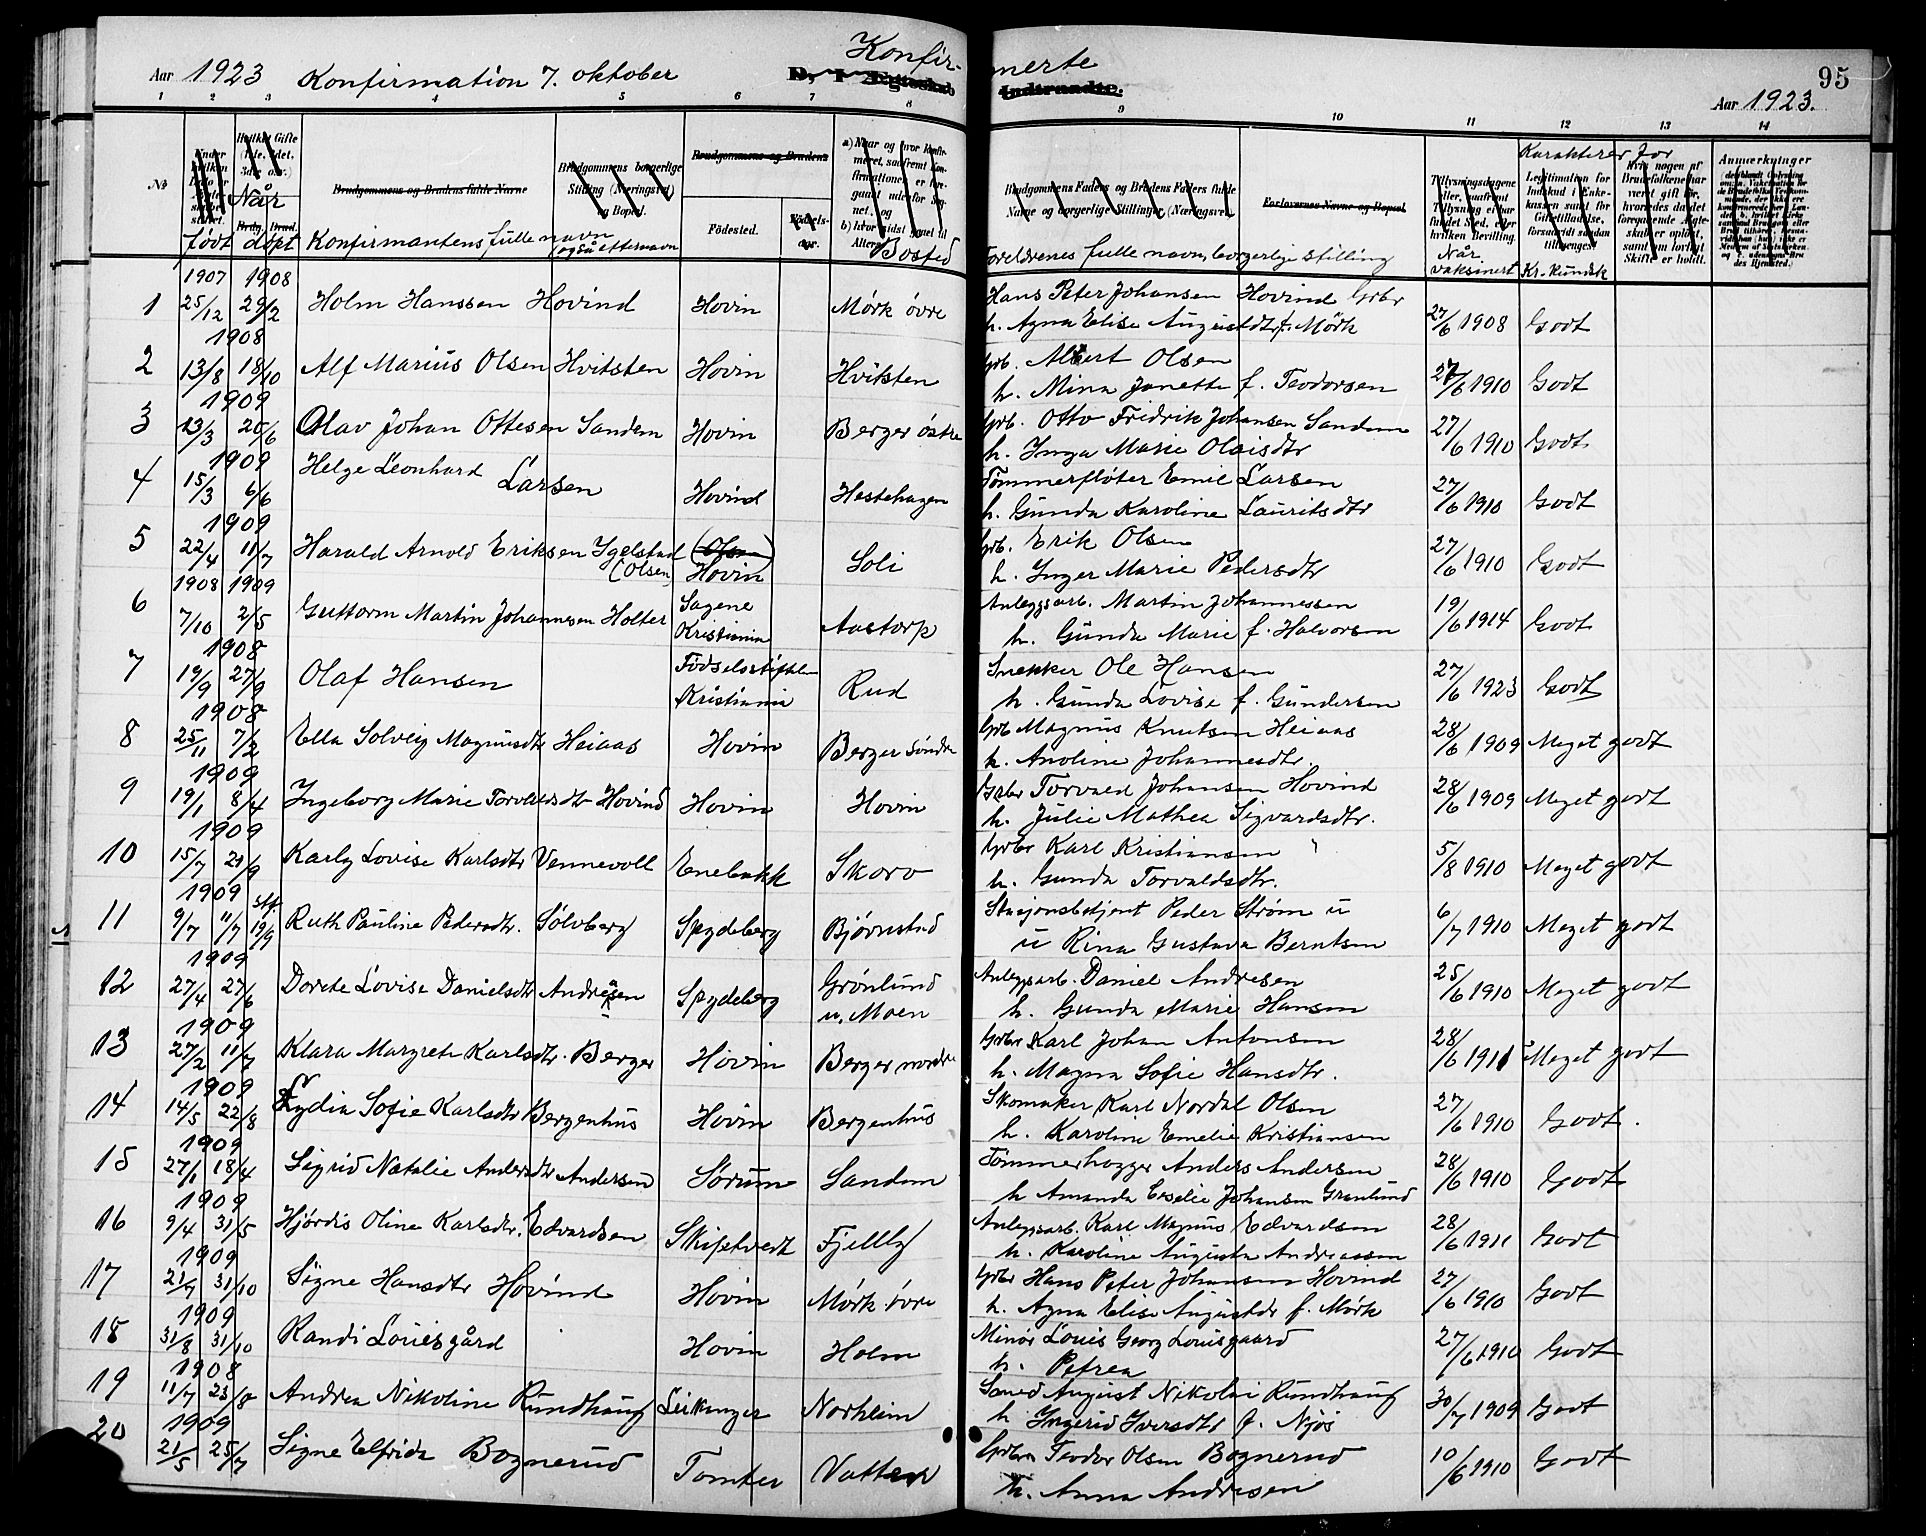 Aar 1923 Konfirmation 7. oktober Konfirmerte 95
Aar 1923.
1 2 3 4 5 6 7 8 9 10 11 12 13 14
Karakterer for
No Når
Brudgommens og Brudens fulde Navne
Brudgommens borgerlige Stilling (Næringsvei) og Bopæl.
Brudgommens og Brudens
Fødested. Fødselsaar.
Brudgommens Faders og Brudens Faders fulde Navne og borgerlige Stillinger (Næringsvei).
Forlovernes Navne og Bopæl.
født døpt Konfirmantens fulle navn også etternavn Bosted Foreldrenes fulle navn, borgerlige stilling Når vaksinert Kr. kundsk
1907 1908
1 25/12 29/2 Holm Hanssen Hovind Hovin Mørk øvre Hans Peter Johansen Hovind Grbr
h. Agna Elise Augustdtr f. Mørk 27/6 1908 Godt
1908
2 13/8 18/10 Alf Marius Olsen Hvitsten Hovin Hvitsten Grb. Albert Olsen
h. Mina Janette f. Teodorsen 27/6 1910 Godt
1909
3 13/3 20/6 Olav Johan Ottesen Sandem Hovin Berger østre Grb. Otto Fridrik Johansen Sandem
h. Inga Marie Olaisdtr 27/6 1910 Godt
1909
4 15/3 6/6 Helge Leonhard Larsen Hovind Hestehagen Tømmerfløter Emil Larsen
h. Gunda Karoline Lauritsdtr 27/6 1910 Godt
1909
5 22/4 11/7 Harald Arnold Eriksen Igelstad (Olsen)
(Olsen) Hovin Soli Grb. Erik Olsen
h. Inger Marie Pedersdtr 27/6 1910 Godt
1908 1909
6 7/10 2/5 Guttorm Martin Johannesen Holter Sagene Kristiania Aastorp Anleggsarb. Martin Johannessen
h. Gunda Marie f. Halvorsen 19/6 1914 Godt
1908
7 19/9 27/9 Olaf Hansen Fødselsstiftelsen Kristiania Rud Snekker Ole Hansen
h. Gunda Lovise f. Gundersen 27/6 1923 Godt
1908
8 25/11 7/2 Ella Solveig Magnusdtr Heiaas Hovin Berger søndre Grb Magnus Knutsen Heiaas
h. Anoline Johannesdtr. 28/6 1909 Meget godt
1909
9 19/1 8/4 Ingeborg Marie Torvaldsdtr Hovind Hovin Hovin Grbr Torvald Johansen Hovind
h. Julie Mathea Sigvardsdtr. 28/6 1909 Meget godt
1909
10 15/7 21/9 Karly Lovise Karlsdtr Vennevoll Enebakk Skoro Grbr Karl Kristiansen
h. Gunda Torvaldsdtr. 5/8 1910 Meget godt
1909
11 9/7 11/7 st. 19/9 Ruth Pauline Pedersdtr. Sølvberg Spydeberg Bjørnstad Stasjonsbetjent Peder Strøm u
u Rina Gustava Berntsen 6/7 1910 Meget godt
1909
12 27/4 27/6 Dorete Lovise Danielsdtr Andresen Spydeberg Grønlund u. Moen Anleggsarb. Daniel Andresen
h. Gunda Marie Hansen 25/6 1910 Meget godt
1909
13 27/2 11/7 Klara Margrete Karlsdtr. Berger Hovin Berger nordre Grbr Karl Johan Antonsen
h. Magna Sofie Hansdtr. 28/6 1911 Meget godt
1909
14 14/5 22/8 Lydia Sofie Karlsdtr Bergenhus Hovin Bergenhus Skomaker Karl Nordal Olsen
h. Karoline Emelie Kristiansen 27/6 1910 Godt.
1909
15 27/1 18/4 Sigrid Natalie Andersdtr Andersen Sørum Sandem Tømmerhogger Anders Andersen
h Amanda Eselie Johansen Granlund 28/6 1910 Godt
1909
16 9/4 31/5 Hjørdis Oline Karlsdtr. Edvardsen Skiptvedt Fjelly Anleggsarb. Karl Magnus Edvardsen
h. Karoline Augusta Andreassen 28/6 1911 Godt
1909
17 21/7 31/10 Signe Hansdtr Hovind Hovin Mørk øvre Grbr Hans Peter Johansen Hovind
h. Agna Elise Augustdr f. Mørk 27/6 1910 Godt
1909
18 31/8 31/10 Randi Louisgård Hovin Holm Minør Louis Georg Louisgaard
h. Petrea 27/6 1910 Godt
1908
19 11/7 23/8 Andrea Nikoline Rundhaug Leikanger Norheim Smed August Nikolai Rundhaug
h Ingerid Iversdtr f. Njøs 30/7 1909 Godt
1909
20 21/5 25/7 Signe Elfrida Bognerud Tomter Vatter Grbr Teodor Olsen Bognerud
h. Anna Andresen 10/6 1910 Godt